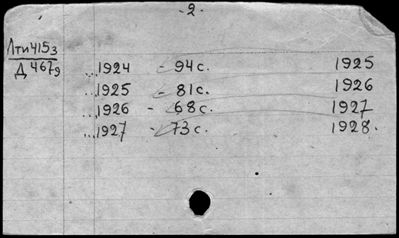 - 2 -
Лти 415з
Д 4679
...1924 - 94 с. 1925
...1925 - 81 с. 1926
...1926 - 68 с. 1927
...1927 - 73 с. 1928.